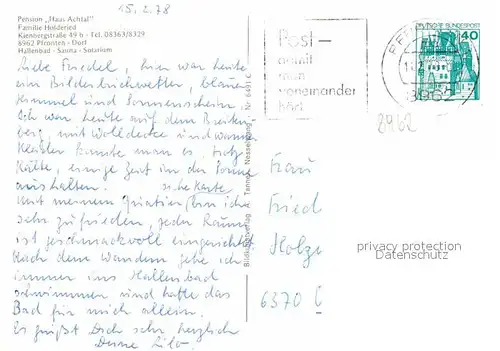 15.2.78
Pension „Haus Achtal"
Familie Holderied
Kienbergstraße 49 h - Tel. 08363/8329
8962 Pfronten - Dorf
Hallenbad - Sauna - Solarium
Liebe Friedel, hier war heute
ein Bilderbuchwetter, blauer
Himmel und Sonnenschein.
Ich war heute auf dem Breiten-
berg, mit Wolldecke und warmer
Kleider konnte man es, trotz
Kälte, einige Zeit in der Sonne
aushalten. siehe Karte
Mit meinem Quartier bin ich
sehr zufrieden, jeder Raum
ist geschmackvoll eingerichtet.
Nach dem Wandern gehe ich
immer ins Hallenbad
schwimmen und hatte das
Bad für mich allein.
Es grüßt Dich sehr herzlich
Deine Lilo.
Nr. 6491 C
Tannh. Nesselwang
Post -
damit
man
voneinander
hört
DEUTSCHE BUNDESPOST
40
8962
8962
Frau
Fried
Holz
6370
privacy protection
Datenschutz